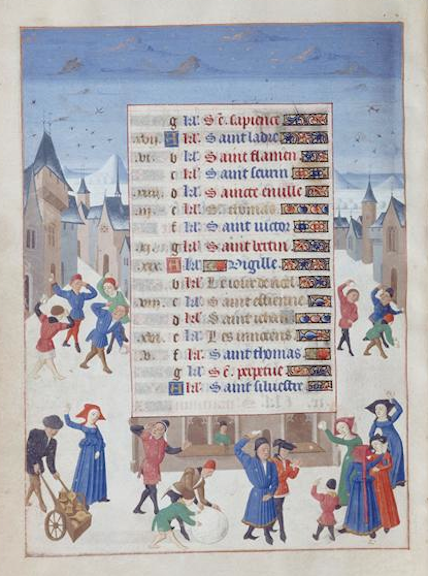 g kl'. S c. sapience
xviii. A kl'. Saint ladre
vii. b kl'. Saint flamen
c kl'. Saint seurin
d kl'. Saincte euuille
iiii. e kl'. S. thomas
f kl'. Saint uictor
g kl'. Saint bertin
A kl'. Vigille.
b kl'. Le iour de noel
e kl'. Saint estienne
d kl'. Saint
xvi. e kl'. Les innocens
v. f kl'. Saint thomas
g kl'. S c. perpetue
A kl'. Saint siluestre